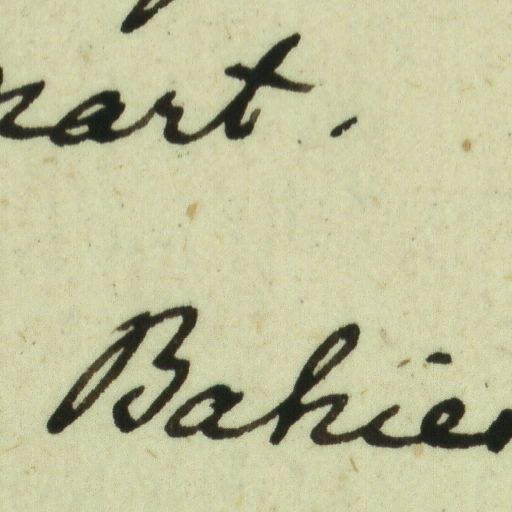 part.
Bahier